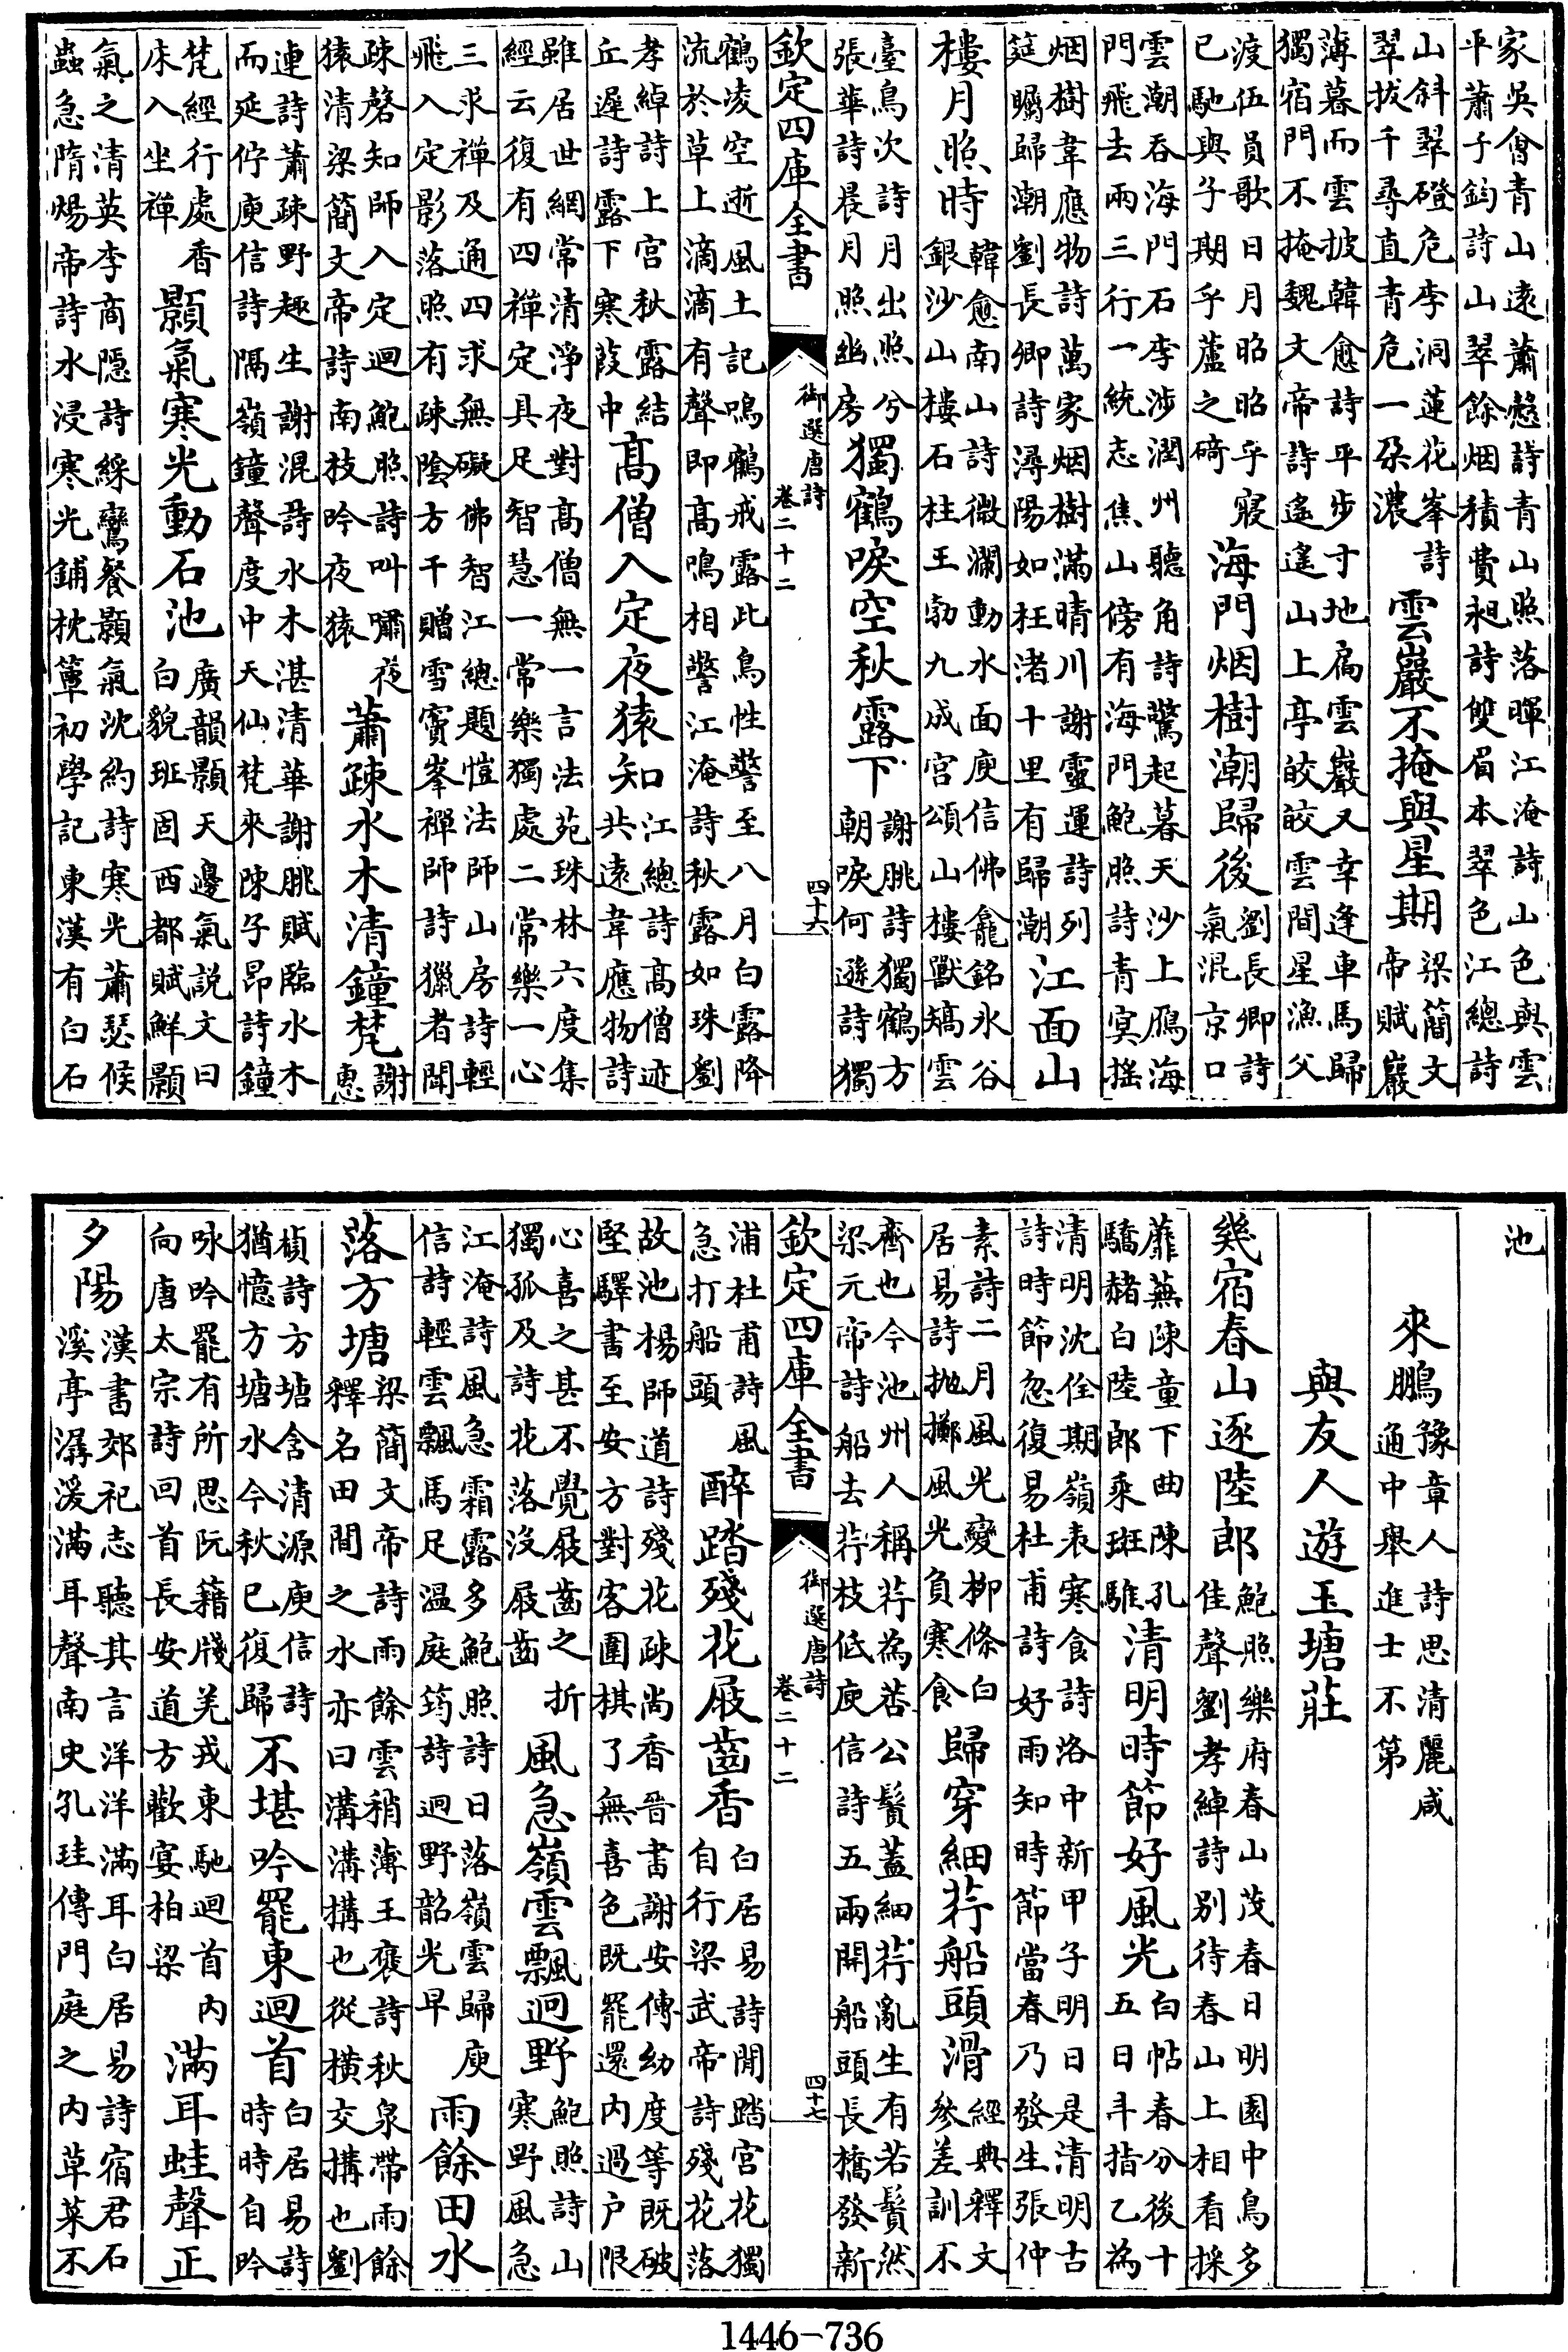 家吳會青山遠蕭慤詩青山照落暉江淹詩山色與雲
平蕭子鈞詩山翠餘烟積費昶詩雙眉本翠色江總詩
山斜翠磴危李洞蓮花峯詩
翠拔千尋直青危一朶濃
雲巖不掩與星期
梁簡文
帝賦巖
薄暮而雲披韓愈詩平步寸地扁雲巖又幸逢車馬歸
獨宿門不掩魏文帝詩遙遙山上亭皎皎雲間星漁父
渡伍員歌日月昭昭乎寢
已馳與子期乎蘆之碕
海門烟樹潮歸後
劉長卿詩
氣混京口
雲潮吞海門石李涉潤州聽角詩驚起暮天沙上鴈海
門飛去兩三行一統志焦山傍有海門鮑照詩青冥搖
烟樹韋應物詩萬家烟樹滿晴川謝靈運詩列
筵矚歸潮劉長卿詩潯陽如枉渚十里有歸潮
江面山
樓月照時
韓愈南山詩微瀾動水面庾信佛龕銘氷谷
銀沙山樓石柱王勃九成宮頌山樓獸矯雲
臺鳥次詩月出照兮
張華詩晨月照幽房
獨鶴唳空秋露下
謝朓詩獨鶴方
朝唳何遜詩獨
欽定四庫全書
御選唐詩
卷二十二
四十六
鶴凌空逝風土記鳴鶴戒露此鳥性警至八月白露降
流於草上滴滴有聲即高鳴相警江淹詩秋露如珠劉
孝綽詩上宮秋露結
丘遲詩露下寒葭中
高僧入定夜猿知
江總詩高僧迹
共遠韋應物詩
雖居世網常清淨夜對高僧無一言法苑珠林六度集
經云復有四禪定具足智慧一常樂獨處二常樂一心
三求禪及通四求無礙佛智江總題愷法師山房詩輕
飛入定影落照有疎陰方干贈雪竇峯禪師詩獵者聞
疎磬知師入定迴鮑照詩叫嘯夜
猿清梁簡文帝詩南枝吟夜猿
蕭疎水木清鐘梵
謝
惠
連詩蕭疎野趣生謝混詩水木湛清華謝朓賦臨水木
而延佇庾信詩隔嶺鐘聲度中天仙梵來陳子昂詩鐘
梵經行處香
床入坐禪
顥氣寒光動石池
廣韻顥天邊氣説文曰
白貌班固西都賦鮮顥
氣之清英李商隱詩綵鸞餐顥氣沈約詩寒光蕭瑟候
蟲急隋煬帝詩水浸寒光鋪枕簟初學記東漢有白石
池
來鵬
豫章人詩思清麗咸
通中舉進士不第
與友人遊玉塘莊
幾宿春山逐陸郎
鮑照樂府春山茂春日明園中鳥多
佳聲劉孝綽詩别待春山上相看採
蘼蕪陳童下曲陳孔
驕赭白陸郎乘斑騅
清明時節好風光
白帖春分後十
五日斗指乙為
清明沈佺期嶺表寒食詩洛中新甲子明日是清明古
詩時節忽復易杜甫詩好雨知時節當春乃發生張仲
素詩二月風光變柳條白
居易詩抛擲風光負寒食
歸穿細荇船頭滑
經典釋文
參差訓不
齊也今池州人稱荇為荇公鬢蓋細荇亂生有若鬢然
梁元帝詩船去荇枝低庾信詩五兩開船頭長橋發新
欽定四庫全書
御選唐詩
卷二十二
四十七
浦杜甫詩風
急打船頭
醉踏殘花屐齒香
白居易詩閒踏宮花獨
自行梁武帝詩殘花落
故池楊師道詩殘花疎尚香晉書謝安傳幼度等既破
堅驛書至安方對客圍棋了無喜色既罷還内過户限
心喜之甚不覺屐齒之折
獨孤及詩花落没屐齒
風急嶺雲飄迥野
鮑照詩山
寒野風急
江淹詩風急霜露多鮑照詩日落嶺雲歸庾
信詩輕雲飄馬足温庭筠詩迥野韶光早
雨餘田水
落方塘
梁簡文帝詩雨餘雲稍薄王褒詩秋泉帶雨餘
釋名田間之水亦曰溝溝搆也從横交搆也劉
楨詩方塘含清源庾信詩
猶憶方塘水今秋已復歸
不堪吟罷東迴首
白居易詩
時時自吟
咏吟罷有所思阮籍牋羌戎東馳迴首内
向唐太宗詩回首長安道方歡宴柏梁
滿耳蛙聲正
夕陽
漢書郊祀志聽其言洋洋滿耳白居易詩宿君石
溪亭潺湲滿耳聲南史孔珪傳門庭之内草菜不
1446-736